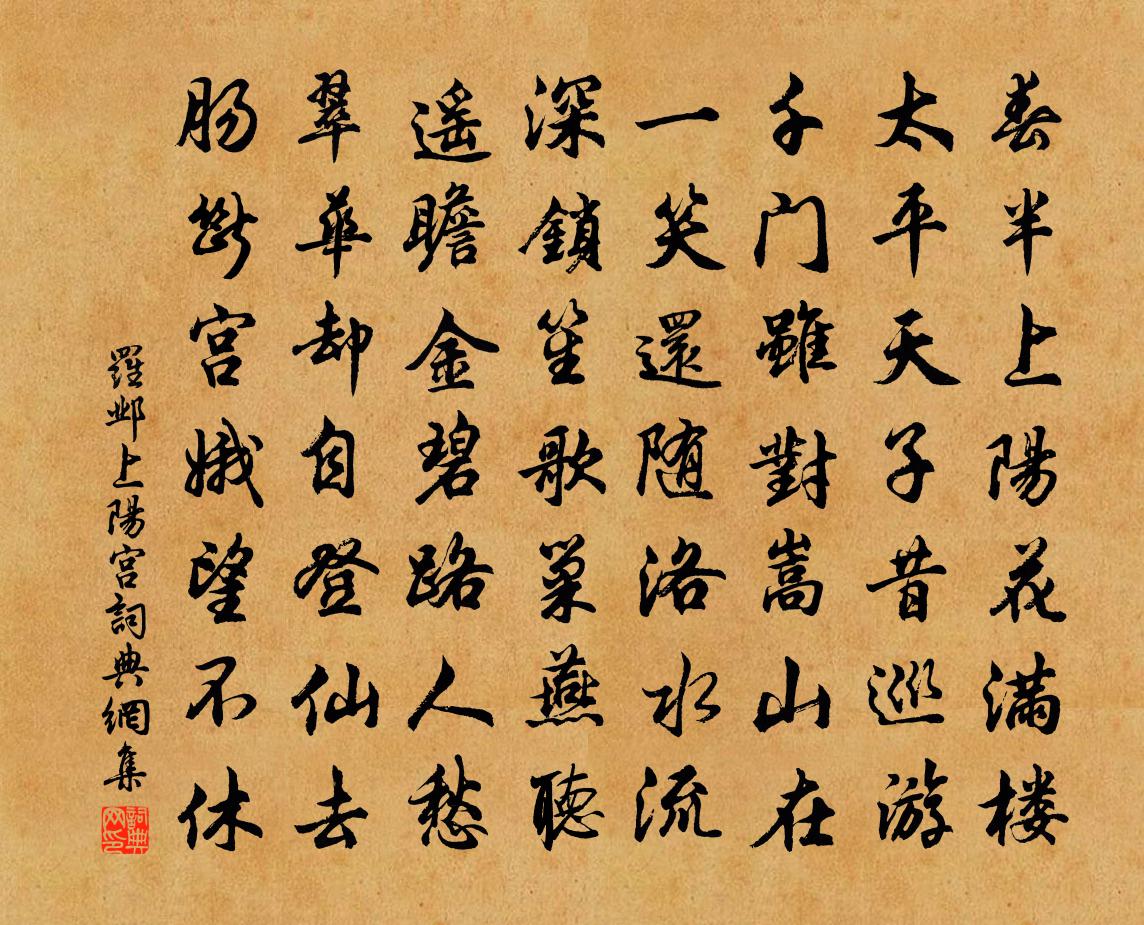 春半上陽花滿楼
太平天子昔巡游
千门雖對嵩山在
一笑還随洛水流
深鎖笙歌巢燕聽
遥瞻金碧路人愁
翠華却自登仙去
肠斷宫娥望不休
羅邺上陽宫詞典網集
詞典網印